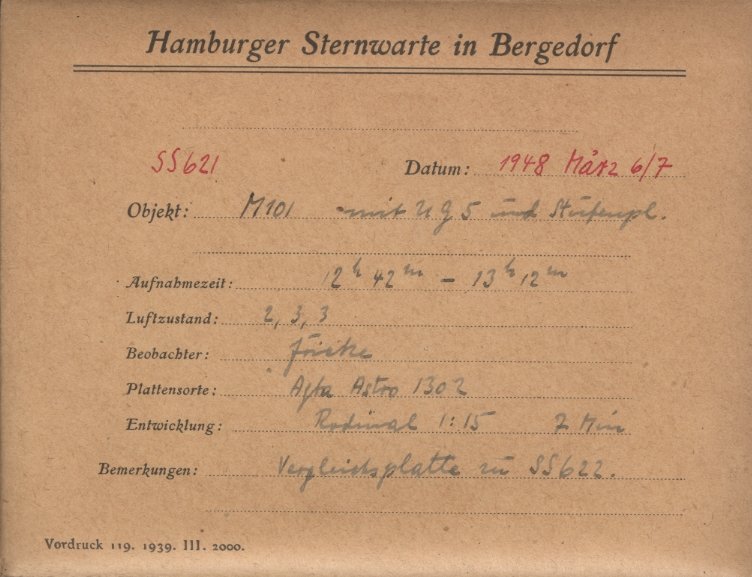 Hamburger Sternwarte in Bergedorf
SS621 Datum: 1948 März 6/7
Objekt: M101 mit UG5 und Stufenpl.
Aufnahmezeit: 12h 42m – 13h 12m
Luftzustand: 2, 3, 3
Beobachter: Fricke
Plattensorte: Agfa Astro 1302
Entwicklung: Rodinal 1:15 7 Min
Bemerkungen: Vergleichsplatte zu SS622.
Vordruck 119. 1939. III. 2000.